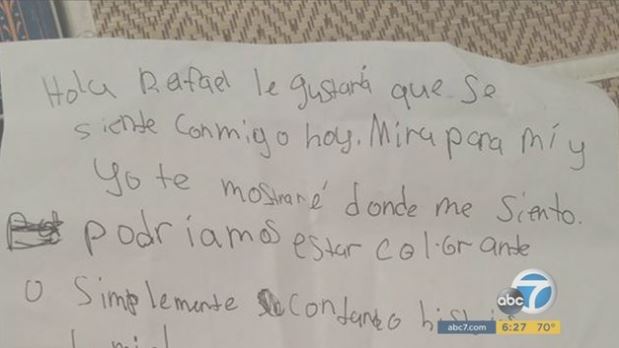 Hola Rafael le gustará que se
siente conmigo hoy. Mira para mí y
yo te mostraré donde me siento.
podríamos estar colorante
o simplemente contando
abc 7
abc7.com 6:27 70°